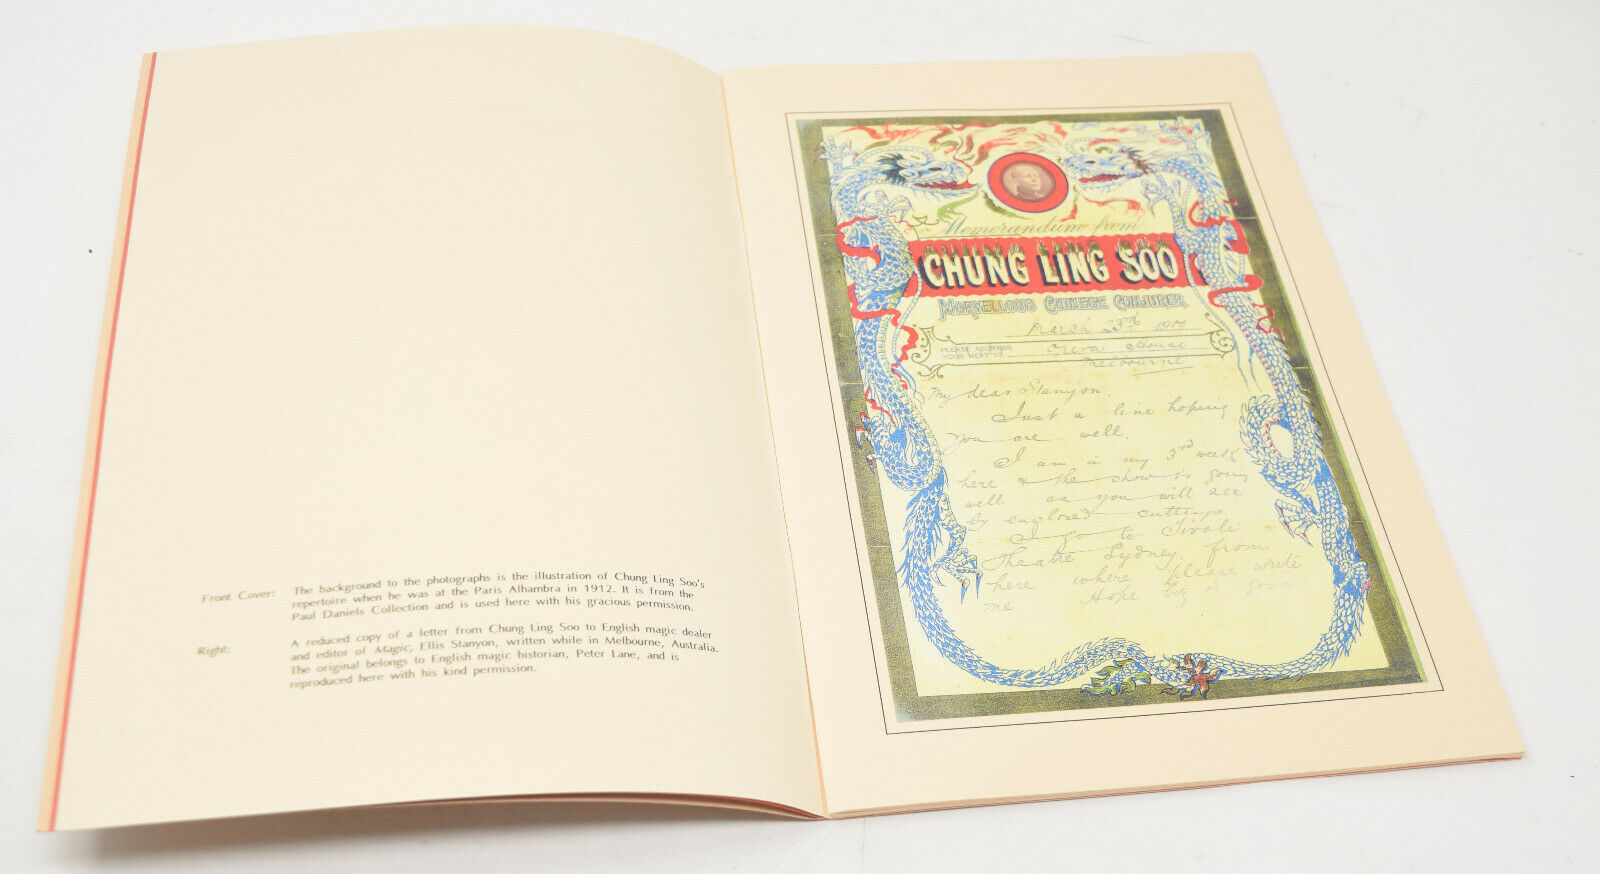 Front Cover: The background to the photographs is the illustration of Chung Ling Soo's
repertoire when he was at the Paris Alhambra in 1912. It is from the
Paul Daniels Collection and is used here with his gracious permission.
Right: A reduced copy of a letter from Chung Ling Soo to English magic dealer
and editor of Magic, Ellis Stanyon, written while in Melbourne, Australia.
The original belongs to English magic historian, Peter Lane, and is
reproduced here with his kind permission.
Memorandum from
CHUNG LING SOO
MARVELLOUS CHINESE CONJURER
March 23rd
PLEASE ADDRESS
YOUR NEXT TO
Opera House
Melbourne
My dear Stanyon.
Just a line hoping
you are well.
I am in my 3rd week
here & the show is going
well as you will see
by enclosed cuttings
I go to Tivoli
Theatre Sydney. from
here where please write
me. Hope biz is good